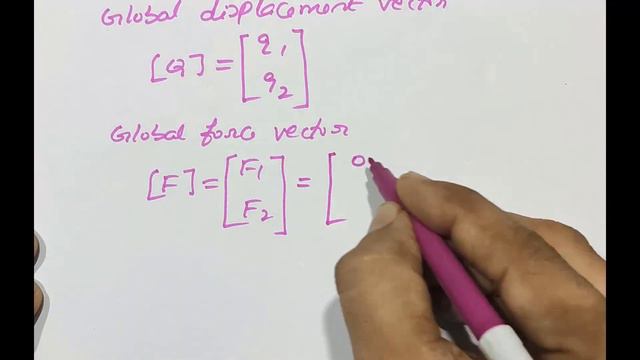 Global displacement vector
[Q] = [ q1
q2 ]
Global force vector
[F] = [ F1
F2 ] = [ 0